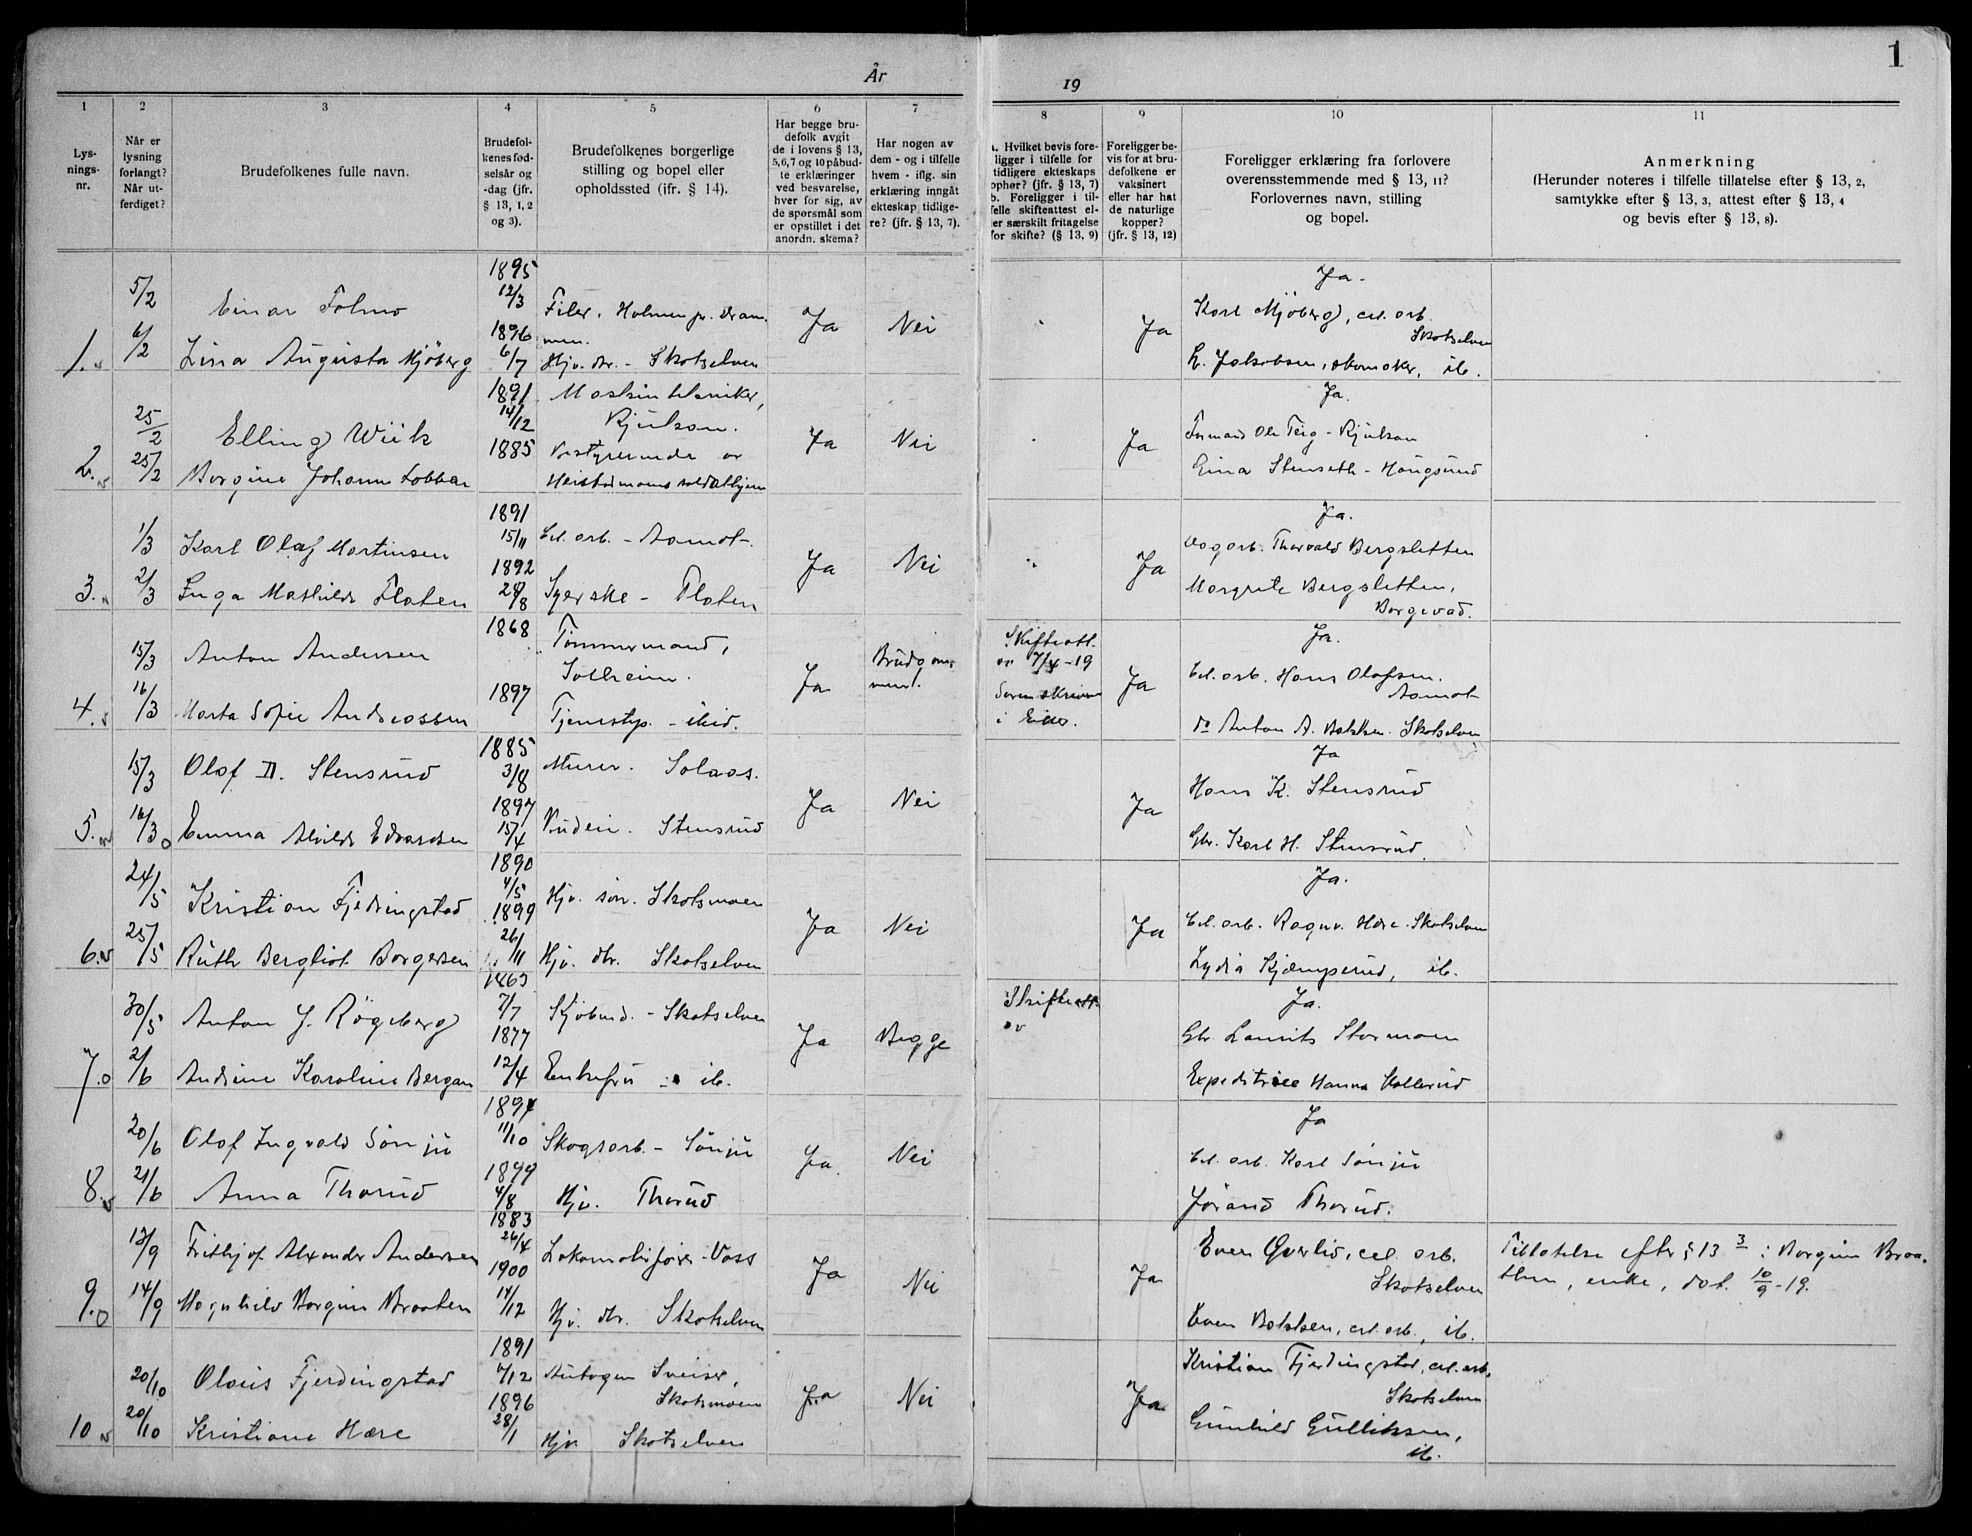 1
År
19
1 2 3 4 5 6 7 8 9 10 11
Lys-
nings-
nr.
Når er
lysning
forlangt?
Når ut-
ferdiget?
Brudefolkenes fulle navn.
Brudefol-
kenes fød-
selsår og
-dag (jfr.
§ 13, 1, 2
og 3).
Brudefolkenes borgerlige
stilling og bopel eller
opholdssted (ifr. § 14).
Har begge bru-
defolk avgit
de i lovens § 13,
5,6,7 og 10 påbud-
te erklæringer
ved besvarelse,
hver for sig, av
de spørsmål som
er opstillet i det
anordn. skema?
Har nogen av
dem - og i tilfelle
hvem - iflg. sin
erklæring inngått
ekteskap tidlige-
re? (jfr. § 13, 7).
a. Hvilket bevis fore-
ligger i tilfelle for
tidligere ekteskaps
opher? (jfr. § 13, 7)
b. Foreligger i til-
felle skifteattest el-
er særskilt fritagelse
for skifte? (§ 13, 9)
Foreligger be-
vis for at bru-
defolkene er
vaksinert
eller har hat
de naturlige
kopper?
(jfr. § 13, 12)
Foreligger erklæring fra forlovere
overensstemmende med § 13, 11?
Forlovernes navn, stilling
og bopel.
Anmerkning
(Herunder noteres i tilfelle tillatelse efter § 13, 2,
samtykke efter § 13, 3, attest efter § 13, 4
og bevis efter § 13, 8).
1.
5/2
6/2
Einar Tolmo
Lina Augusta Mjöberg
1895
12/3
1896
6/7
Filer, Holmen pr. Dram-
men.
Hjv. dtr. - Skotselven
Ja
Nei
Ja
Ja.
Karl Mjöberg, cel. arb.
Skotselven
L. Jakobsen, skomaker, ib.
2.
25/2
25/2
Elling Wiik
Borgine Johanne
1891
14/12
1885
Maskintekniker,
Rjukan.
Bestyrerinde av
Heistadmoens soldathjem
Ja
Nei
Ja
Ja.
Formand Ole Teig - Rjukan
Eina Stenseth - Hougsund
3.
1/3
2/3
Karl Olaf Martinsen
Inga Mathilde Flaten
1891
15/11
1892
28/8
Cel. arb. - Aamot.
Syerske - Flaten
Ja
Nei
Ja
Ja.
Thorvald Bergsletten
Margrete Bergsletten,
Borgevad.
4.
15/3
16/3
Anton Andersen
Marta Sofie Andreassen
1868
1897
Tømmermand,
Solheim.
Tjenestep. - ibid.
Ja
Brudgom-
men.
Skifteatt.
av 7/4-19
Sorenskriveren
i Eiker.
Ja
Ja.
Cel. arb. Hans Olafsen.
Aamot
do Anton A. Bakken. Skotselven
5.
15/3
16/3
Olaf D. Stensrud
Emma Alvilde Edvardsen
1885
3/8
1897
15/4
Murer. Solaas.
Stensrud
Ja
Nei
Ja
Ja
Hans K. Stensrud
Gbr. Karl H. Stensrud
6.
24/5
25/5
Kristian Fjerdingstad
Ruth Bergliot Borgersen
1890
4/5
1899
26/11
Hjv. søn. Skotsmoen
Hjv. dtr. Skotselven
Ja
Nei
Ja
Ja.
Cel. arb. Ragnv. Hære. Skotselven
Lydia Kjæmperud, ib.
7.
30/5
2/6
Anton J. Rögeberg
Andrine Karoline Bergan
1863
7/7
1877
12/4
Kjøbmd. - Skotselven
Enkefru - ib.
Ja
Begge
Skifteatt.
av
Ja.
Gbr. Laurits Stormoen
Expeditrice Hanna Kollerud
8.
20/6
21/6
Olaf Ingvald Sönju
Anna Thorud
1897
11/10
1899
4/8
Skogsarb. - Sönju
Hjv. Thorud
Ja.
Nei
Ja
Cel. arb. Karl Sönju
Jørand Thorud.
9.
13/9
14/9
Fritjof Alexander Andersen
Magnhild Borgine Braaten
1883
26/4
1900
14/12
Lokomotivfører - Voss
Hjv. dtr. Skotselven
Ja
Nei
Ja
Even Överlid, cel. arb.
Skotselven
Even Bakken, cel. arb., ib.
Tillatelse efter § 13 3 : Borgine Braa-
then, enke, dat. 10/9-19.
10
20/10
20/10
Olaus Fjerdingstad
Kristiane Hære
1891
6/12
1896
28/1
Autogen Sveiser,
Skotsmoen
Hjv. Skotselven
Ja
Nei
Ja
Kristian Fjerdingstad, cel. arb.
Skotselven
Gunhild Gulliksen,
ib.